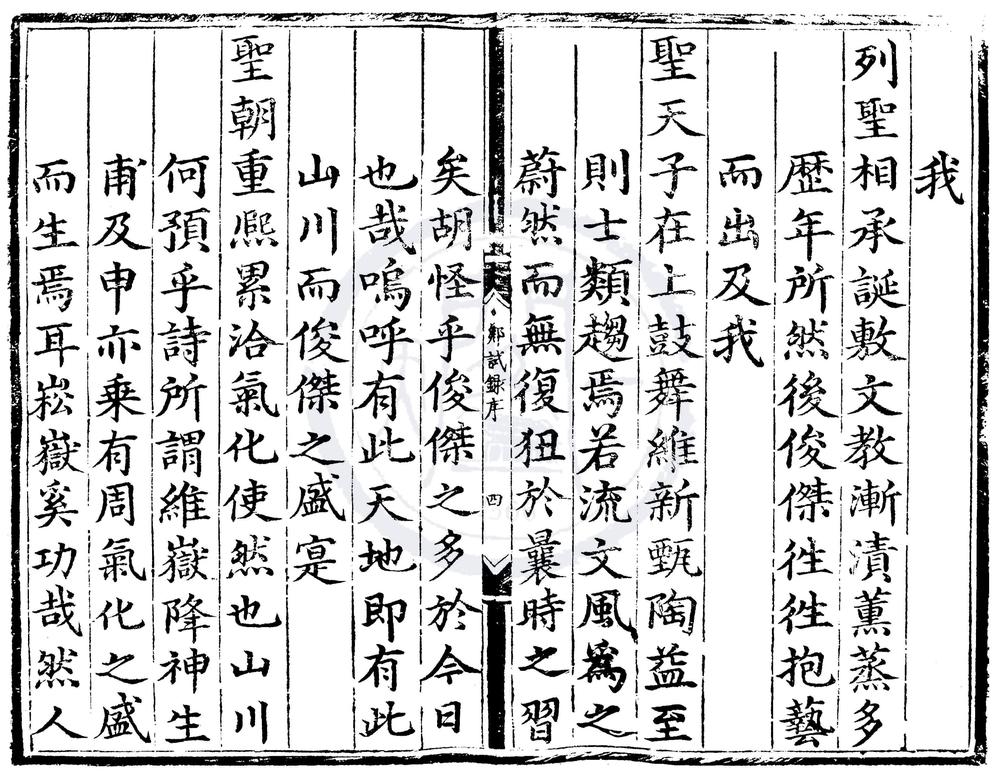 我
列聖相承誕敷文教漸漬薫蒸多
歷年所然後俊傑徃徃抱藝
而出及我
聖天子在上鼓舞維新甄陶益至
則士類趨焉若流文風爲之
蔚然而無復狃於曩時之習
鄉試錄序
四
矣胡怪乎俊傑之多於今日
也哉嗚呼有此天地即有此
山川而俊傑之盛寔
聖朝重熈累洽氣化使然也山川
何預乎詩所謂維嶽降神生
甫及申亦乗有周氣化之盛
而生焉耳崧嶽奚功哉然人